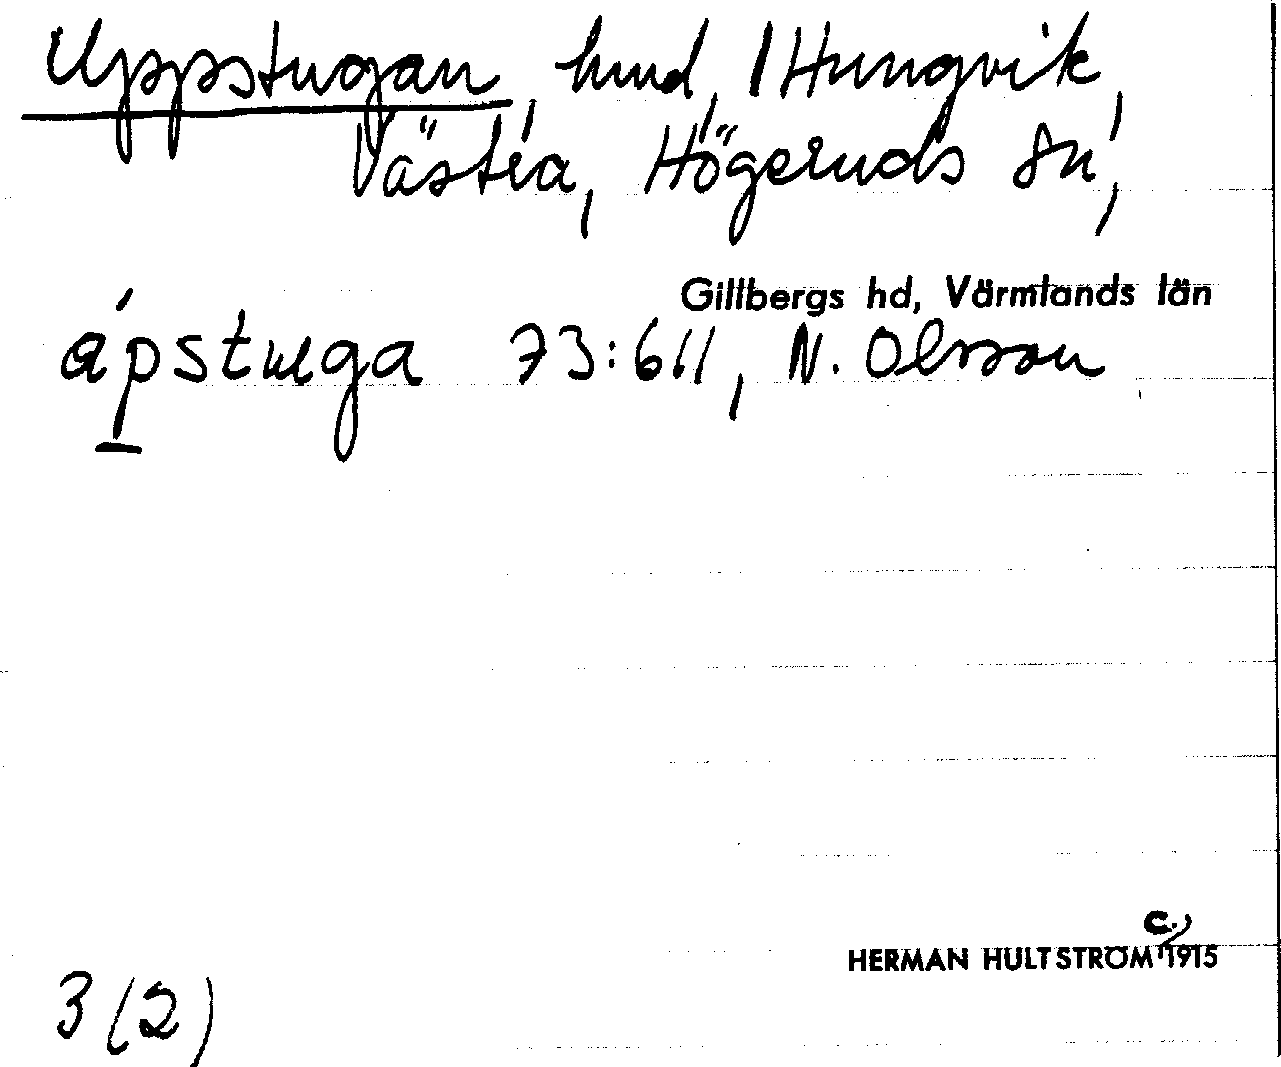 Uppstugan, hmd, 1 Hungvik,
Västra, Högeruds sn,
Gillbergs hd, Värmlands län
ápstuga 73:611, N. Olsson
C.
HERMAN HULTSTRÖM 1915
3 (2)